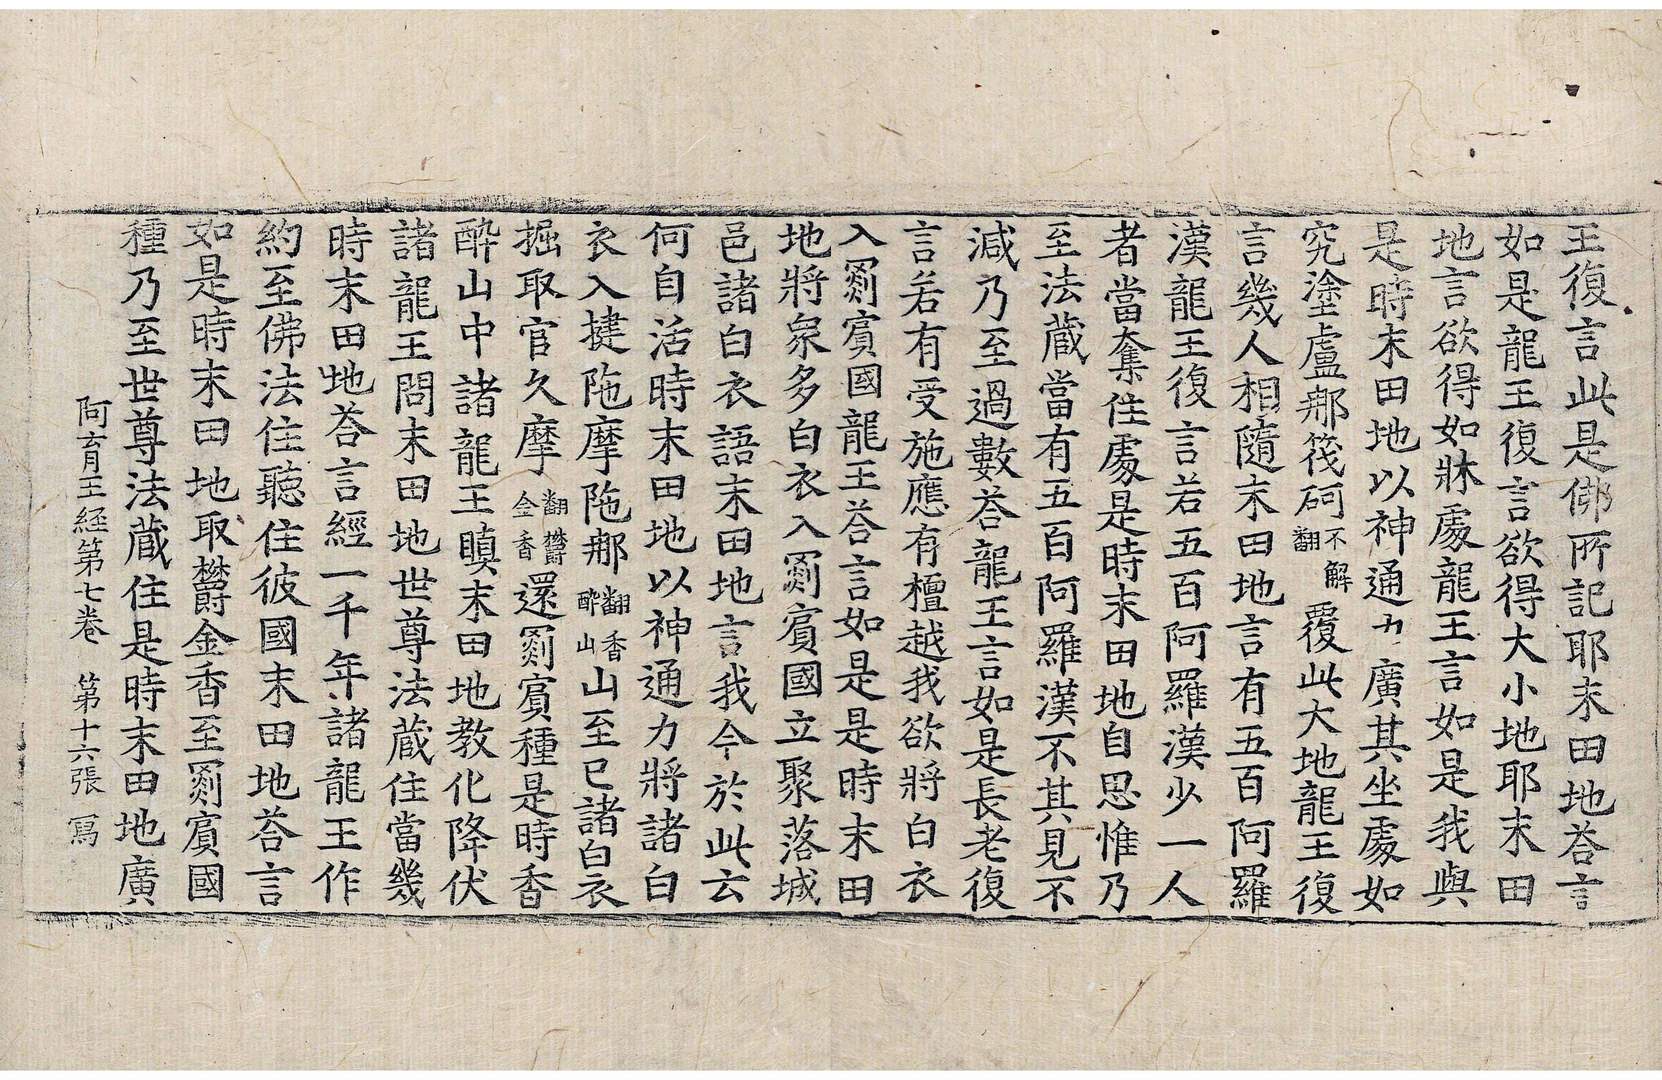 王復言此是佛所記耶末田地荅言
如是龍王復言欲得大小地耶末田
地言欲得如牀處龍王言如是我與
是時末田地以神通力廣其坐處如
究塗盧那筏砢不解翻覆此大地龍王復
言幾人相隨末田地言有五百阿羅
漢龍王復言若五百阿羅漢少一人
者當奪住處是時末田地自思惟乃
至法蔵當有五百阿羅漢不其見不
減乃至過數荅龍王言如是長老復
言若有受施應有檀越我欲將白衣
入罽賓國龍王荅言如是是時末田
地將衆多白衣入罽賓國立聚落城
邑諸白衣語末田地言我今於此云
何自活時末田地以神通力將諸白
衣入揵陁摩陁那翻香酔山山至已諸白衣
掘取官久摩翻欝金香還罽賓種是時香
酔山中諸龍王瞋末田地教化降伏
諸龍王問末田地世尊法蔵住當幾
時末田地荅言經一千年諸龍王作
約至佛法住聽住彼國末田地荅言
如是時末田地取欝金香至罽賓國
種乃至世尊法蔵住是時末田地廣
阿育王経第七卷　第十六張　寫